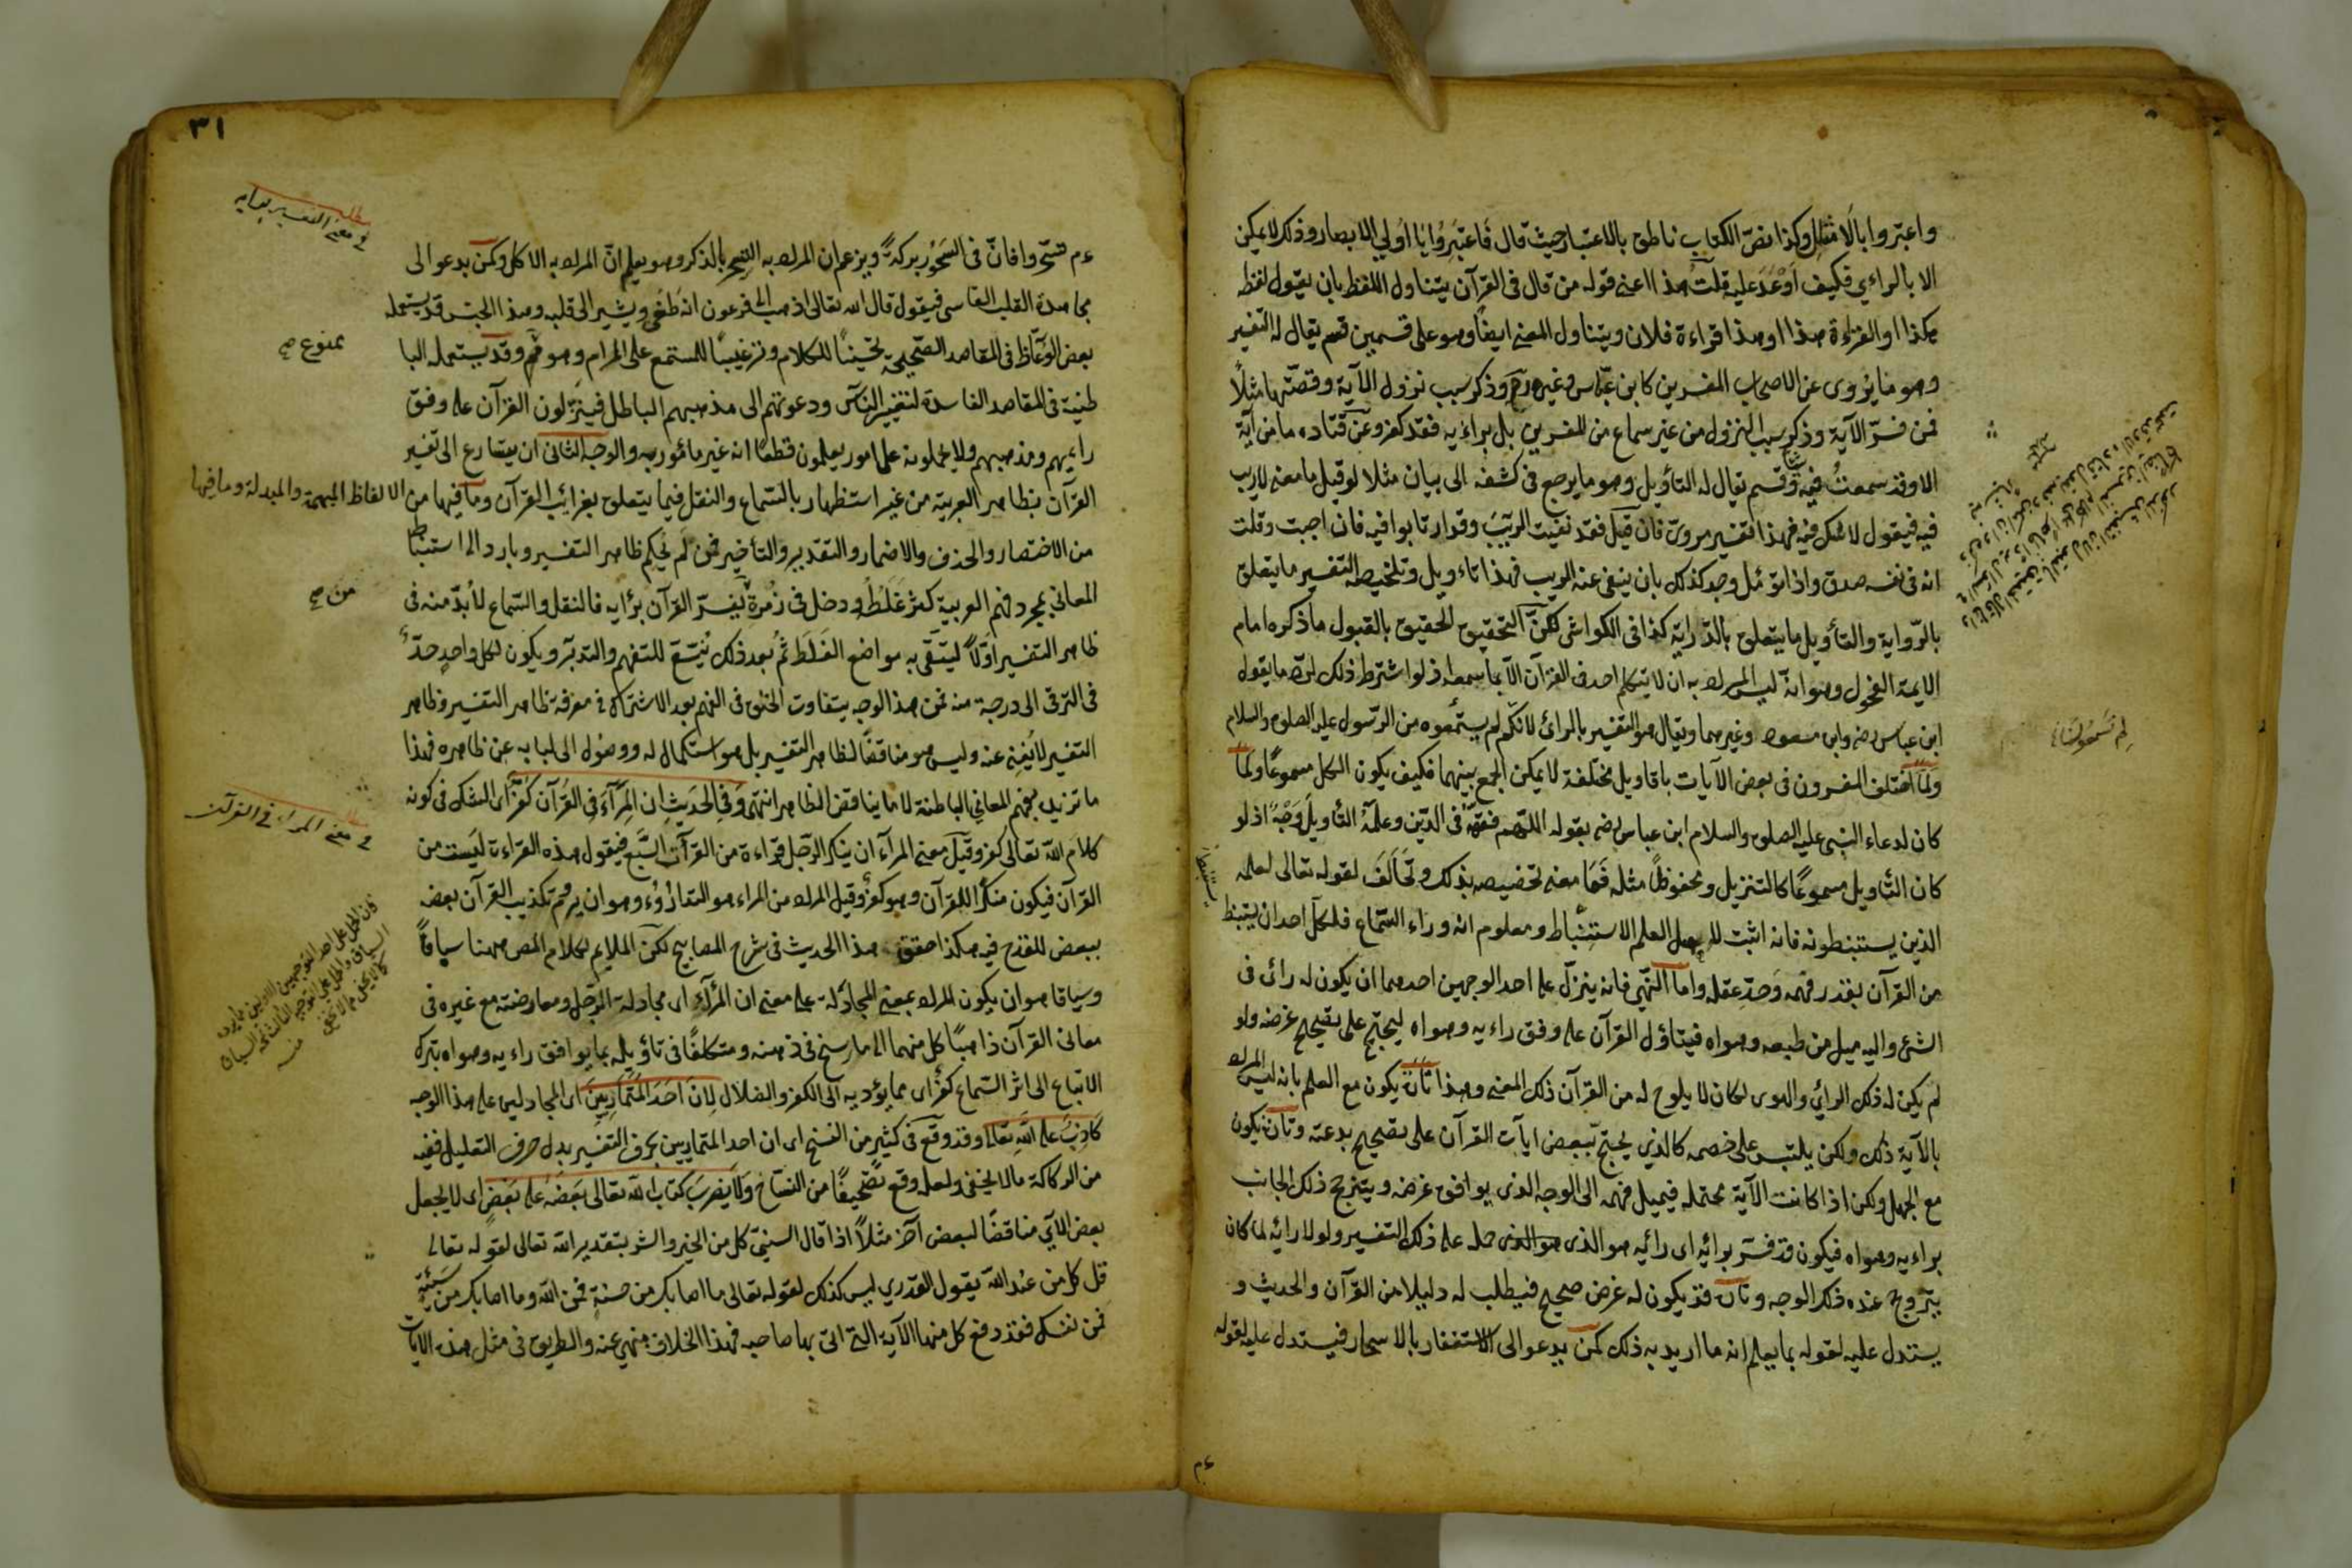 واعبّروا بالامثال وكذا نصّ الكتاب ناطق بالاعتبار حيث قال فَاعْتَبِرُوا يَا اُولِي الابصار وذلك لا يمكن
الا بالراءي فكيف اَوْعَدَ عليه قلتُ هذا اعنى قوله من قال فى القرآن يتناول اللفظ بان يقول لفظه
هكذا او القراءة هذا او هذا قراءة فلان ويتناول المعنى ايضًا وهو على قسمين قسم يقال له التفسير
وهو ما يُروى عن الاصحاب المفسرين كابن عبّاس وغيره رح وذكر سبب نزول الآية وقصّتها مثلًا
فمن فسّر الآية وذكر سبب النزول من غير سماع من المفسرين بل براءيه فقد كفر وعن قتاده ما من آية
الا وقد سمعتُ فيه وقسم يقال له التأويل وهو ما يرجع فى كشفه الى بيان مثلا لو قيل ما معنى لا ريب
فيه فيقول لا شك فيه فهذا تفسير مروىّ فان قيل فقد نفيت الريبَ وقد ارتابوا فيه فان اجبت وقلت
انه فى نفسه صدق واذا تؤمّل وجد كذلك بان ينفى عنه الريب فهذا تاءويل وتلخيصه التفسير ما يتعلق
بالرّواية والتأويل ما يتعلق بالدّراية كذا فى الكواشى لكنّ التحقيق الحقيق بالقبول ما ذكره امام
الايمة الفحول وهو انهّ ليس المراد به ان لا يتكلم احد فى القرآن الّا بما سمعه اذ لو اشترط ذلك لردّ ما يقول
ابن عباس رضه وابن مسعود وغيرهما ويقال هو التفسير بالرائ لانّكم لم يسمعوه من الرّسول عليه الصلوة والسلام
وَلَمَا اختلف المفسرون فى بعض الآيات باقاويل مختلفة لا يمكن الجمع بينهما فكيف يكون الكل مسموعًا ولَمَا
كان لدعاء النبى عليه الصلوة والسلام ابن عباس رضه بقوله اللّهم فقهّه فى الدّين وعلّمه التأويلَ وَجْهٌ اذ لو
كان التأويل مسموعًا كالتنزيل ومحفوظًا مثله فَمَا معنى تخصيصه بذلك وتخالَفَ لقوله تعالى لعلمه
الذين يستنبطونه فانه اثبت لاهل العلم الاستنباط ومعلوم انه وراء السّماع فلكلّ احد ان يستنبط
من القرآن بقدر فهمه وحدّ عقله واما النّهى فانه ينزّل على احد الوجهين احدهما ان يكون له رائ فى
الشئ واليه ميل من طبعه وهواه فيتاؤل القرآن على وفق راءيه وهواه ليحتج على تصحيح غرضه ولو
لم يكن له ذلك الرائي والهوى لكان لا يلوح له من القرآن ذلك المعنى وهذا تارة يكون مع العلم بانه ليس المراد
بالآية ذلك ولكن يلبّس على خصمه كالذي يحتج ببعض ايآت القرآن على تصحيح بدعته وتارة يكون
مع الجهل ولكن اذا كانت الآية محتمله فيميل فهمه الى الوجه الذى يوافق غرضه ويترجح ذلك الجانب
براءيه وهواه فيكون قد فسّر برائيه اى رائيه هو الذى حمله على ذلك التفسير ولولا رائيه لما كان
يترّوج عنده ذلك الوجه وتارة قد يكون له غرض صحيح فيطلب له دليلا من القرآن والحديث و
يستدل عليه لقوله بما يعلم انه ما اريد به ذلك كمن يدعو الى الاستغفار بالاسحار فيستدل عليه لقوله
لم تسمعوا
عم
٣١
مطلب
فى معنى التفسير برايه
عم تسحّروا فانّ فى السَحُور بركةً ويزعم ان المراد به التسحّر بالذكر وهو يعلم انّ المراد به الاكل وكمن يدعو الى
مجاهدة القلب القاسى فيقول قال الله تعالى اذهب الى فرعون انه طَغى ويشير الى قلبه وهذا الجنس قد يستعمله
بعض الوعّاظ فى المقاصد الصّحيحة تحسينًا للكلام وترغيبًا للمستمع على المرام وهو وقد يستعمله البا
ممنوع صح
طنية فى المقاصد الفاسدة لتغيير الناس ودعوتهم الى مذهبهم الباطل فينزّلون القرآن على وفق
رايهم ومذهبهم ولا يحملونه على امور يعلمون قطعًا انه غير مأمور به والوجه الثانى ان يتسارع الى تفسير
القرآن بظاهر العربية من غير استظهار بالسّماع والنقل فيما يتعلق بغرائب القرآن وما فيها من الالفاظ المبهمة والمبدلة وما فيها
من الاختصار والحذف والاضمار والتقدير والتأخير فمن لم يحكم ظاهر التفسير وبادر الى استنباط
المعاني بمجرد فهم العربية كثر غَلَطُه ودخل فى زُمرة يفسّر القرآن برايه فالنقل والسّماع لا بدّ منه فى
من صح
ظاهر التفسير اوّلًا ليتقى به مواضع الغَلَط ثم بعد ذلك يتّسع للتفهم والتدبّر ويكون لكل واحدٍ حدّ
فى الترقى الى درجة منه فمن هذا الوجه يتفاوت الخلق فى الفهم بعد الاشتراك فى معرفة ظاهر التفسير وظاهر
التفسير لا يُغنِى عنه وليس هو مناقضًا لظاهر التفسير بل هو استكمال له ووصُول الى لبابه عن ظاهره فهذا
ما نريد بفهم المعاني الباطنة لا ما يناقض الظاهر انتهى وَفِى الحَديثِ ان المِرَآءَ فِى القُرْآنِ كُفْرٌ اى الشك فى كونه
مطلب
فى معنى المراء فى القرآن
كلام الله تعالى كفر وقيل معنى المرآء ان ينكر الرّجل قراءة من القرآت السّبع فيقول هذه القراءة ليست من
القرآن فيكون منكرًا للقرآن وهو كفر وقيل المراد من المراء هو التدارُؤء وهو ان يروم تكذيب القرآن بعضه
ببعض للقدح فيه هكذا حقق هذا الحديث فى شرح المصابيح لكن الملايم لكلام المص ههنا سباقًا
وسياقا هو ان يكون المراد بمعنى المجادلة على معنى ان المرآء اى مجادلة الرّجل ومعارضته مع غيره فى
معانى القرآن ذاهبًا كل منهما الى ما رسخ فى ذهنه ومتكلفًا فى تأويله بما يوافق راءيه وهواه بترك
الاتّباع الى اثر السّماع كفرٌ اى مما يؤديه الى الكفر والضلال لِانَ احَدَ المُتَمَارِيَينَ اى المجادلين على هذا الوجه
كاذِبٌ على اللهِ تعالى وقد وقع فى كثير من النسخ اى ان احد المتماريين بحرف التفسير بدل حرف التعليل ففيه
من الركاكة ما لا يخفى ولعله وقع تصحيفًا من النساخ وَلَا يضرب كتاب الله تعالى بَعْضَهُ على بَعْضٍ اى لا يجعل
بعض الآي مناقضًا لبعض آخر مثلًا اذا قال السنيّ كل من الخير والشر بتقدير الله تعالى لقوله تعالى
قل كل من عند الله يقول القدري ليس كذلك لقوله تعالى ما اصابك من حسنةٍ فمن الله وما اصابك من سَيّئةٍ
فمن نفسك فقد دفع كل منهما الآية التى اتى بها صاحبه فهذا الخلاف منهي عنه والطريق فى مثل هذه الايات